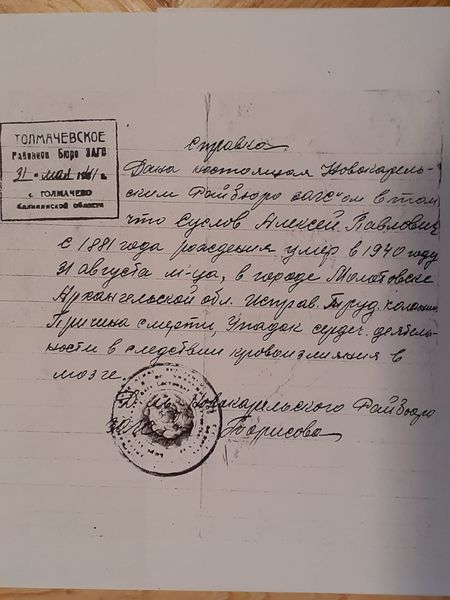 ТОЛМАЧЕВСКОЕ
Районное Бюро ЗАГС
31 мая 1941 г.
с. ТОЛМАЧЕВО
Калининской области
Справка
Дана настоящая Новокарель-
ским Райбюро загс"ом в том
что Суслов Алексей Павлович
с 1881 года рождения умер в 1940 году
31 августа м-ца, в городе Молотовске
Архангельской обл. Исправ. Труд. колонии
Причина смерти, Упадок сердеч. деятель-
ности в следствии кровоизлияния в
мозге.
Новокарельского Райбюро
загс Борисова